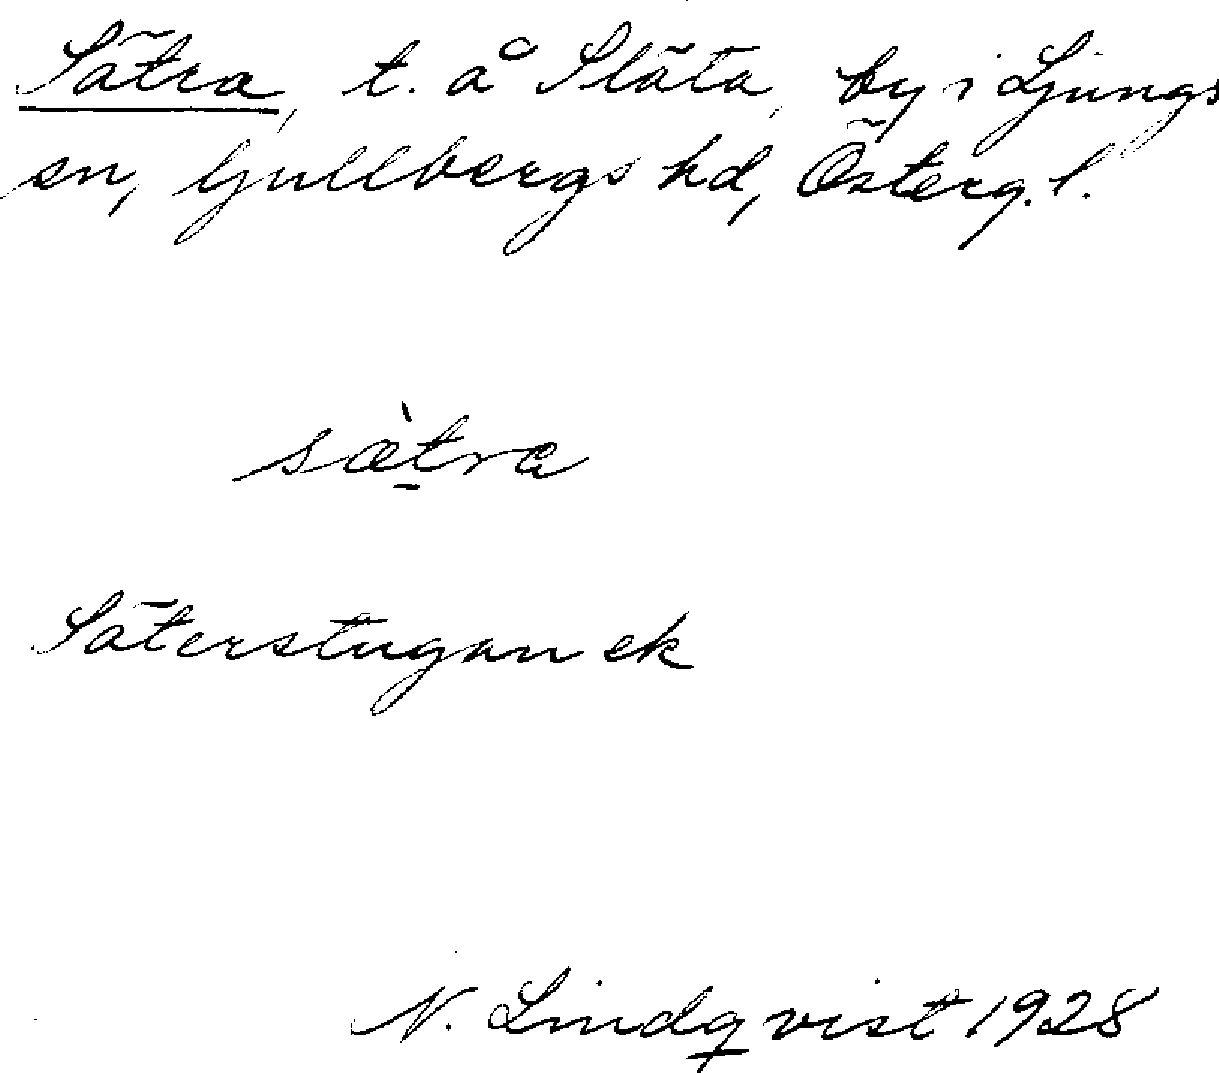 Sätra, t. å Släta, by i Ljungs
sn, Gullbergs hd, Österg. l.
sæ̀tra
Säterstugan ek
N. Lindqvist 1928